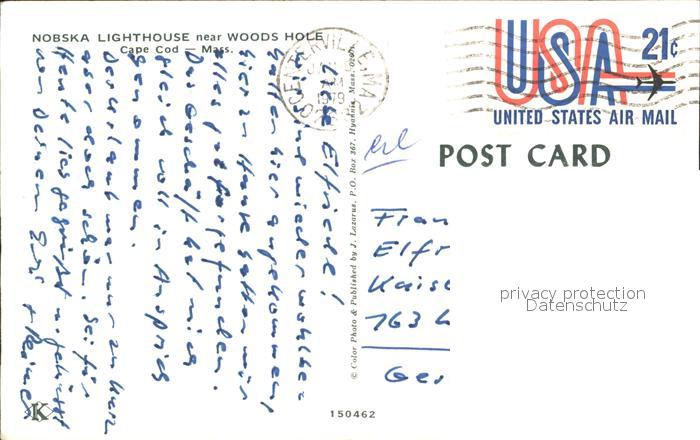 NOBSKA LIGHTHOUSE near WOODS HOLE
Cape Cod — Mass.
Liebe Elfriede!
sind wieder wohlbe-
halten hier angekommen,
hier zu Hause hatten wir
alles gut vorgefunden.
Das Geschäft hat mich
gleich voll in Anspruch
genommen.
Der Urlaub war nur zu kurz
aber doch schön. Sei für
Heute lieb gegrüßt u. geküsst
von Deinem
K
© Color Photo & Published by J. Lazarus, P.O. Box 367, Hyannis, Mass. 02601
150462
CENTERVILLE MA
1979
USA 21c
UNITED STATES AIR MAIL
POST CARD
erl
Frau
Elfr
Kais
763 L
Ger
privacy protection
Datenschutz